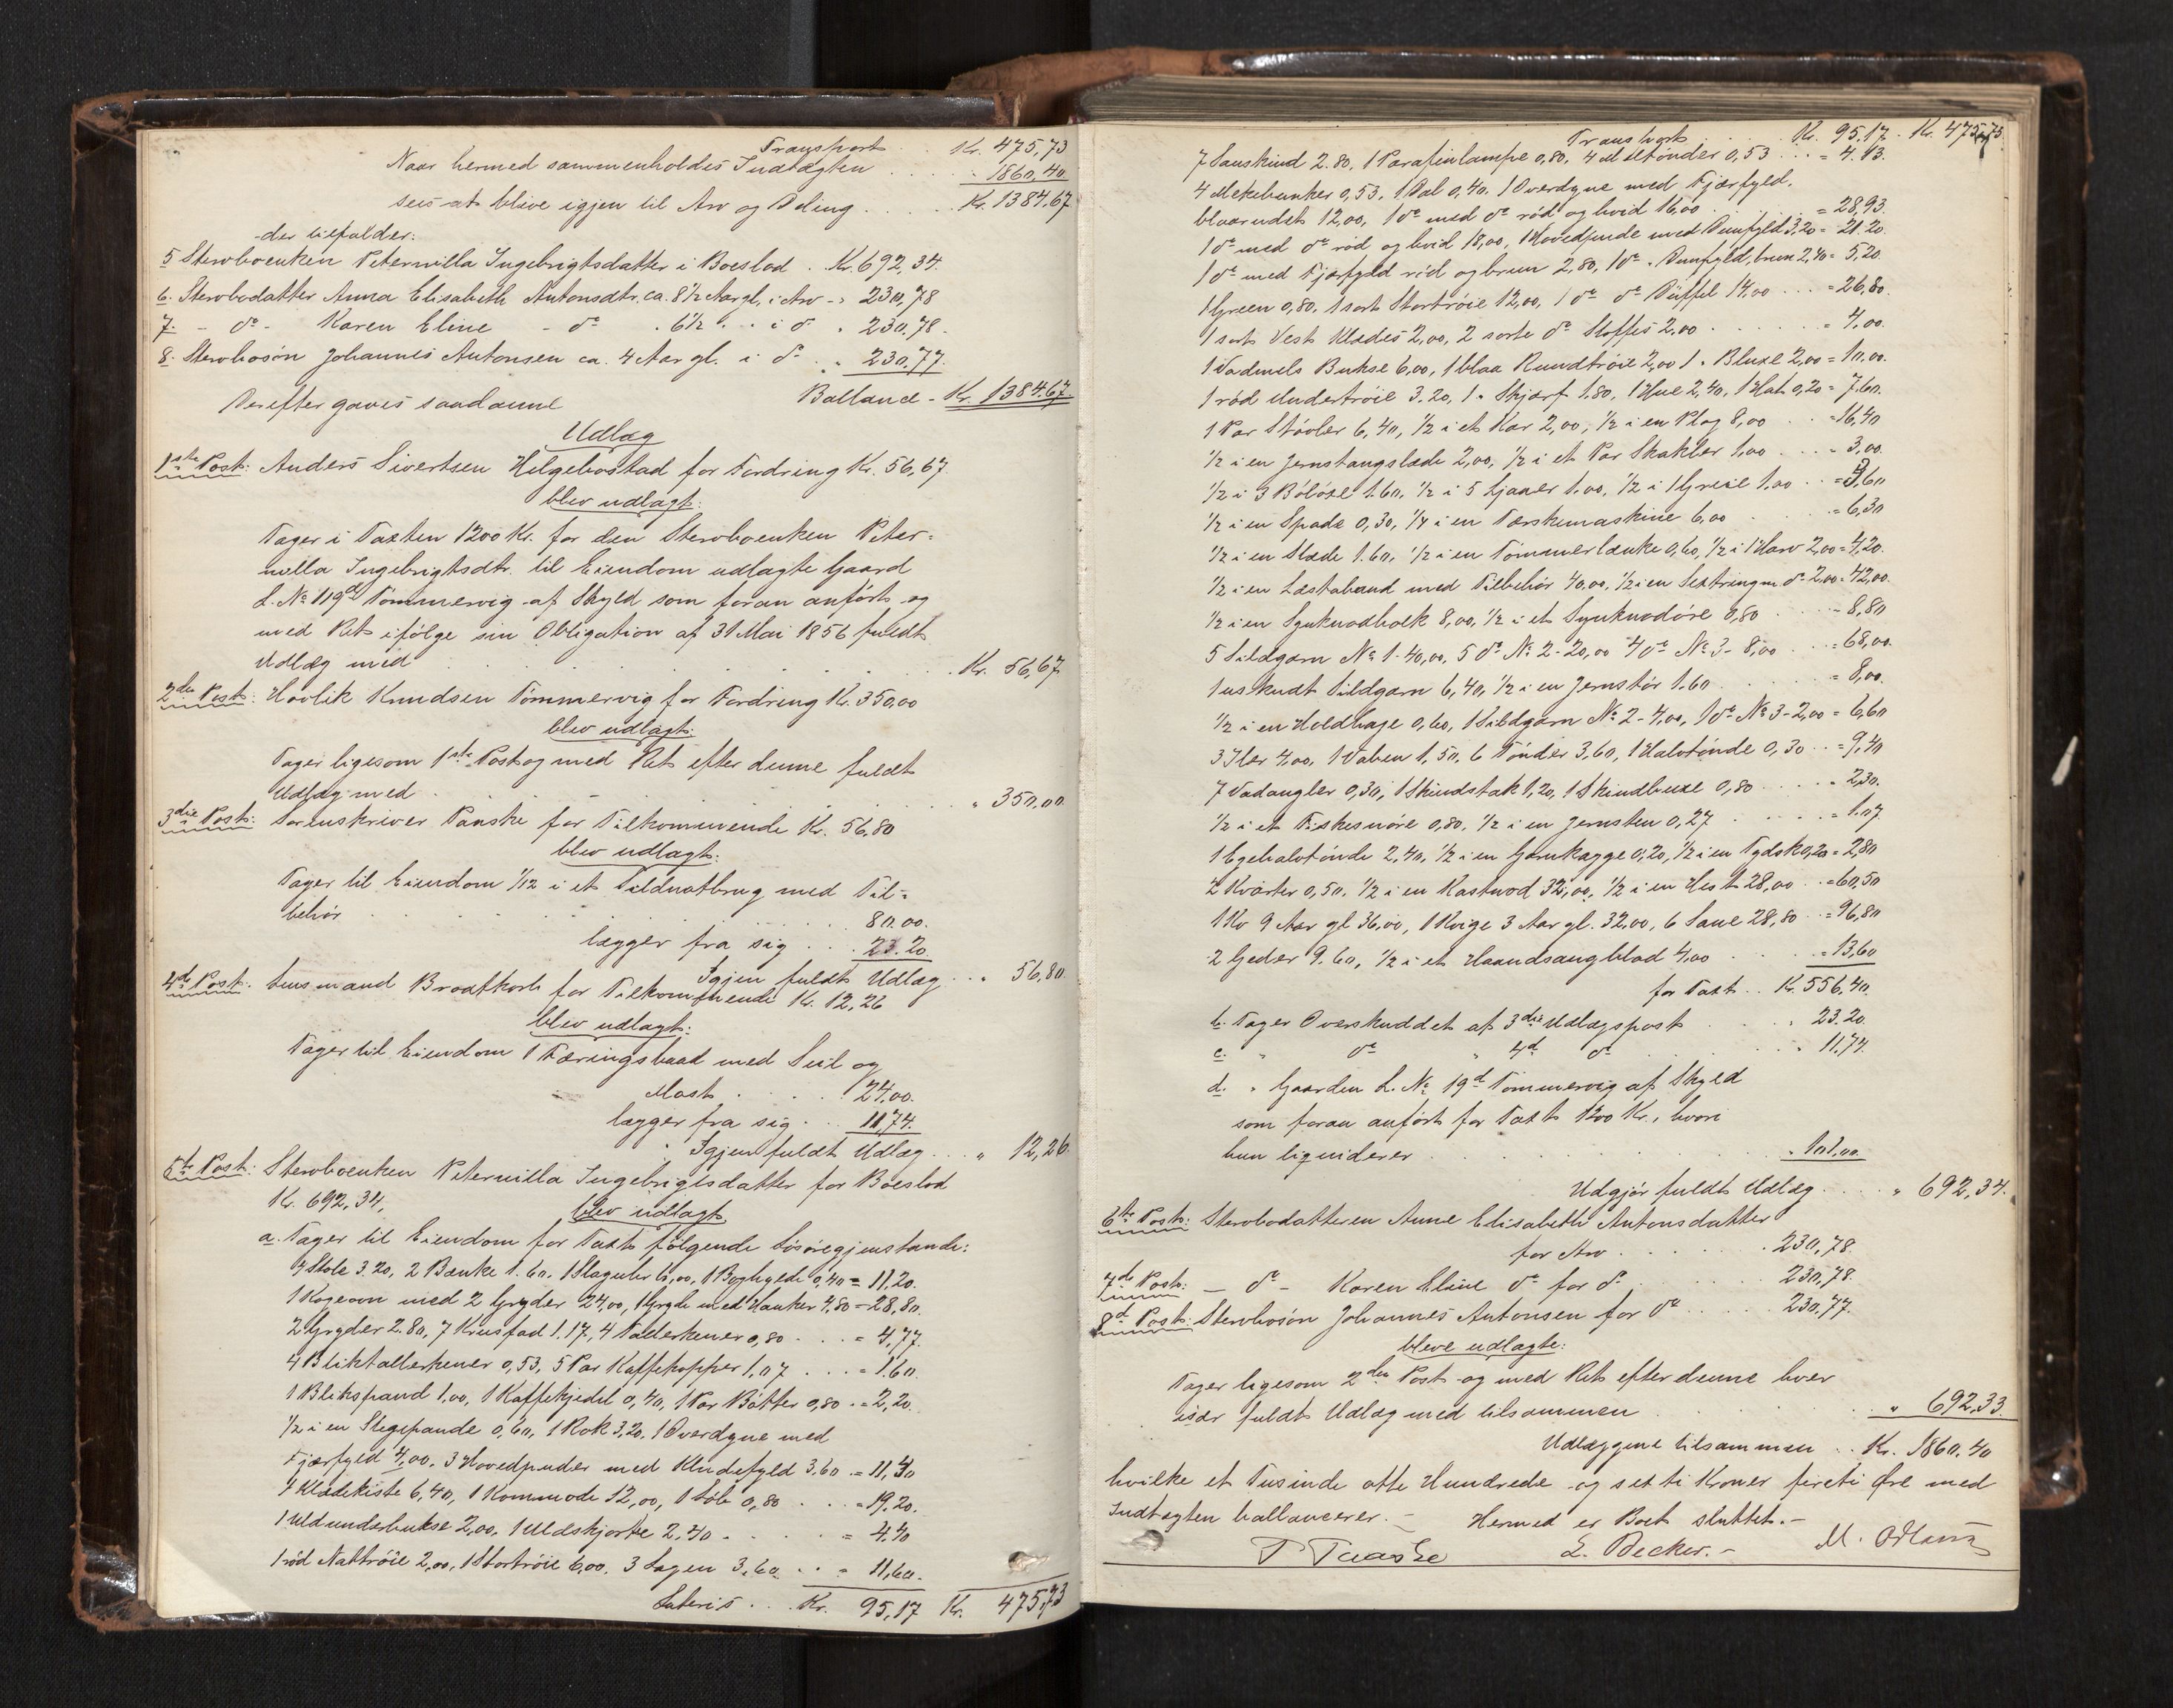 Transport . . Kr. 475,73
Naar hermed sammenholdes Indtægten . . . . . 1860,40
sees at blive igjen til Arv og Deling . . . . . Kr. 1384.67
der tilfalder:
5 Stervboenken Peternilla Ingebrigtsdatter i Boeslod . Kr. 692,34.
6. Stervbodatter Anna Elisabeth Antonsdtr. ca. 8½ Aar gl. i Arv - " 230,78
7. - do - Karen Eline - do . 6½ . . i do " 230,78.
8. Stervbosön Johannes Antonsen ca. 4 Aar gl. i do . . " 230,77.
Ballance - Kr. 1384.67.
Derefter gaves saadanne
Udlæg
1ste Post: Anders Sivertsen Helgebostad for Fordring Kr. 56,67.
blev udlagt:
Tager i Taxten 1200 Kr. for den Stervboenken Peter-
nilla Ingebrigtsdtr. til Eiendom udlagte Gaard
L. No 119d Tömmervig af Skyld som foran anfört og
med Ret ifölge sin Obligation af 31 Mai 1856 fuldt
Udlæg med . . . . . . . . . Kr. 56,67
2den Post: Hovlik Knudsen Tömmervig for Fordring Kr. 350,00
blev udlagt:
Tager ligesom 1ste Post og med Ret efter denne fuldt
Udlæg med . . . . . . . . . " 350,00
3die Post: Sorenskriver Taaske for Tilkommende Kr. 56,80
blev udlagt:
Tager til Eiendom 1/12 i et Sildnotbrug med Til-
behör . . . . . . . . 80.00.
lægger fra sig . . . 23.20
Igjen fuldt Udlæg . . . " 56,80.
4de Post. Lensmand Brodtkorb for Tilkommende Kr. 12,26
blev udlagt:
Tager til Eiendom 1 Færingsbaad med Seil og
Mast . . . . . 24,00.
lægger fra sig . . . 11,74.
Igjen fuldt Udlæg . . . " 12,26.
5te Post: Stervboenken Peternilla Ingebrigtsdatter for Boeslod
Kr. 692,34,
blev udlagt
a. Tager til Eiendom for Taxt fölgende Lösöregjenstande:
4 Stole 3.20, 2 Bænke 1.60, 1 Slaguhr 6,00, 1 Boghylde 0,40 = 11,20.
1 Kogeovn med 2 Gryder 24,00, 1 Gryde med Hanker 4,80 = 28,80.
2 Gryder 2.80, 7 Kruusfad 1.17, 4 Tallerkener 0,80 . . . = 4,77.
4 Bliktallerkener 0,53, 5 Par Kaffekopper 1,07 . . . = 1.60.
1 Blikspand 1,00, 1 Kaffekjedel 0,40, 1 Par Bötter 0,80 . = 2,20.
½ i en Stegepande 0,60, 1 Rok 3,20, 1 Overdyne med
Fjærfyld 4,00, 3 Hovedpuder med Uldfyld 3.60 . = 11,40
1 Klædekiste 6,40, 1 Kommode 12,00, 1 Löb 0,80 . . . = 19.20.
1 Uldundebukse 2,00, 1 Uldskjorte 2,40 . . . . . = 4.40
1 röd Nattröie 2,00, 1 Stortröie 6,00, 3 Lagen 3.60 . . = 11,60.
Lateris . . Kr. 95,17 Kr. 475,73
Transport . . . . Kr. 95.17. Kr. 475,73.
7 Saueskind 2.80, 1 Parafinlampe 0,80, 4 Meltönder 0,53 . . . = 4.13.
4 Melkebunker 0,53, 1 Bal 0,40, 1 Overdyne med Fjærfyld,
blaarudet 12,00, 1 do med do röd og hvid 16,00 . . . . = 28,93.
1 do med do röd og hvid 18,00, 1 Hovedpude med Dunfyld 3,20 = 21.20.
1 do med Fjærfyld röd og brun 2,80, 1 do " Dunfyld, brun 2,40 = 5,20.
1 Green 0,80, 1 sort Stortröie 12,00, 1 do do Düffel 14,00 . . . = 26,80.
1 sort Vest Klædes 2,00, 2 sorte do Stoffes 2,00 . . . . . = 4,00.
1 Vadmels Bukse 6,00, 1 blaa Rundtröie 2,00 1 " Bluse 2,00 = 10,00.
1 röd Undertröie 3.20, 1 " Skjærf 1.80, 1 Hue 2,40, 1 Hat 0,20 = 7.60.
1 Par Stövler 6,40, ½ i et Kar 2,00, ½ i en Plog 8,00 . . = 16,40
½ i en Jernstangslæde 2,00, ½ i et Par Skakler 1,00 . . . = 3,00.
½ i 3 Bölöxe 1.60, ½ i 5 Ljaaer 1,00, ½ i 1 Greie 1.00 . . = 3,60
½ i en Spade 0,30, ¼ i en Tærskemaskine 6,00 . . . . = 6,30
½ i en Slæde 1.60, ½ i en Tömmerlænke 0,60, ½ i 1 Harv 2,00 = 4,20.
½ i en Læstabaand med Tilbehör 40,00, ½ i en Sextring m. do 2,00 = 42,00.
½ i en Synknodbælk 8,00, ½ i et Synknodöre 0,80 . . . . = 8,80
5 Sildgarn No 1 - 40,00, 5 do No 2 - 20,00 4 do No 3 - 8,00 . . . = 68,00.
1 uskudt Sildgarn 6,40, ½ i en Jernstör 1.60 . . . . . = 8,00.
½ i en Holdhage 0,60, 1 Sildgarn No 2 - 4,00, 1 do No 3 - 2,00 = 6,60
3 Iler 4,00, 1 Vaben 1,50, 6 Tönder 3,60, 1 Halvtönde 0,30 . . = 9,40
7 Vadangler 0,30, 1 Skindstak 1,20, 1 Skindbuxe 0,80 . . . . = 2,30.
½ i et Fiskesnöre 0,80, ½ i en Jernsten 0,27 . . . . . = 1.07.
1 Egehalvtönde 2,40, ½ i en Garnkagge 0,20, ½ i en Tydsk 0,20 = 2,80
2 Kvarter 0,50, ½ i en Kastnod 32,00, ½ i en Hest 28,00 . . = 60,50
1 Ko 9 Aar gl 36,00, 1 Kvige 3 Aar gl. 32,00, 6 Saue 28,80 . . = 96,80
2 Geder 9.60, ½ i et Haandsaugblad 4,00 . . . . . = 13,60
for Taxt . . Kr. 556,40.
b. Tager Overskuddet af 3die Udlægspost . . . . " 23.20.
c. " do " 4de do . . . . " 11,74.
d. " Gaarden L. No 19d Tömmervig af Skyld
som foran anfört for Taxt 1200 Kr., hvori
hun liquiderer . . . . . . . " 101,00.
Udgjör fuldt Udlæg . . . . " 692,34.
6te Post: Stervbodatteren Anne Elisabeth Antonsdatter
for Arv . . . . . . 230,78.
7de Post: - do - Karen Eline do for do . . . . . 230,78.
8de Post: Stervbosön Johannes Antonsen for do . . . . . 230,77.
bleve udlagte:
Tager ligesom 2den Post og med Ret efter denne hver
især fuldt Udlæg med tilsammen . . . . . " 692,33.
Udlæggene tilsammen . . Kr. 1860.40
hvilke et Tusinde otte Hundrede og sexti Kroner firti Öre med
Indtægten ballancerer. - Hermed er Boet sluttet. -
T Taaske L. Becker. -